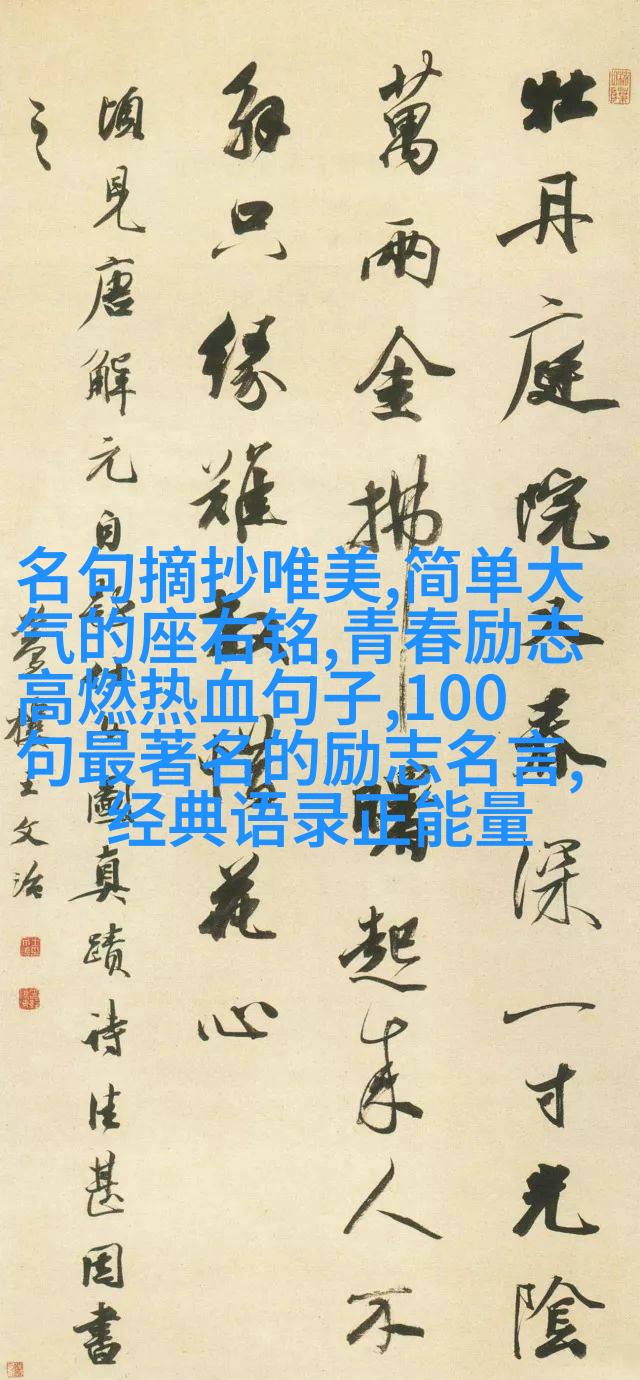 名句摘抄唯美,简单大
气的座右铭,青春励志
高燃热血句子,100
句最著名的励志名言,
经典语录正能量
牡丹庭院又春深一寸光陰
萬兩金拂曙起來人不
解只緣難放惜花心
頃見唐解元自題圖真蹟詩佳甚因書
之
夢樓王文治